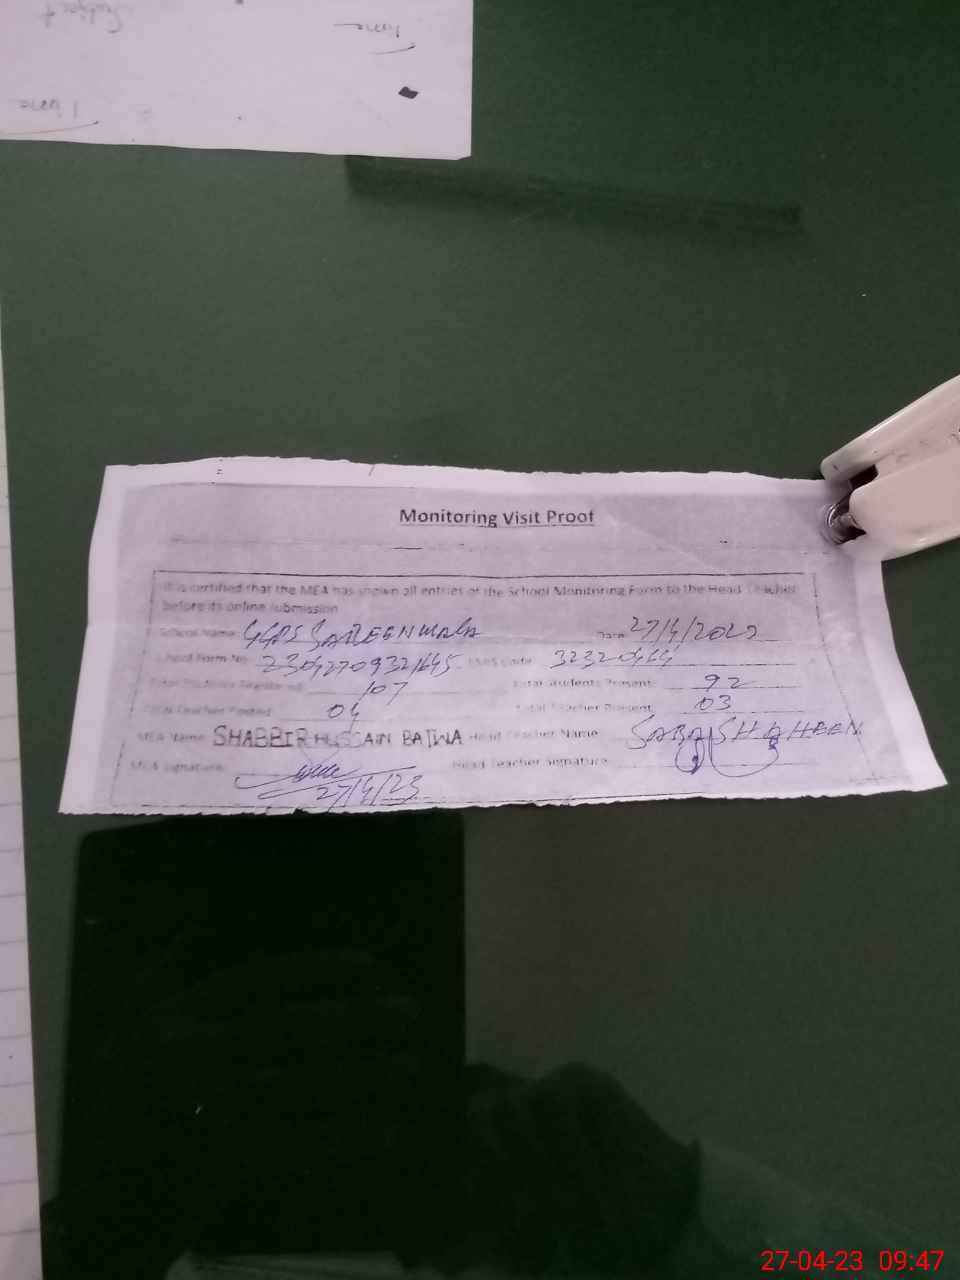 Subject
Time
Time
Monitoring Visit Proof
It is certified that the MEA has shown all entries of the School Monitoring Form to the Head Teacher
before its online submission
School Name: GGPS Date: 27/4/2023
Form No. EMIS Code: 32320464
Total Students Registered: 107 Total Students Present: 92
Total Teacher Posted: 04 Total Teacher Present: 03
MEA Name: SHABBIR HUSSAIN Head Teacher Name SABA SHAHEEN
MEA Signature: Head Teacher Signature:
27/4/23
27-04-23 09:47